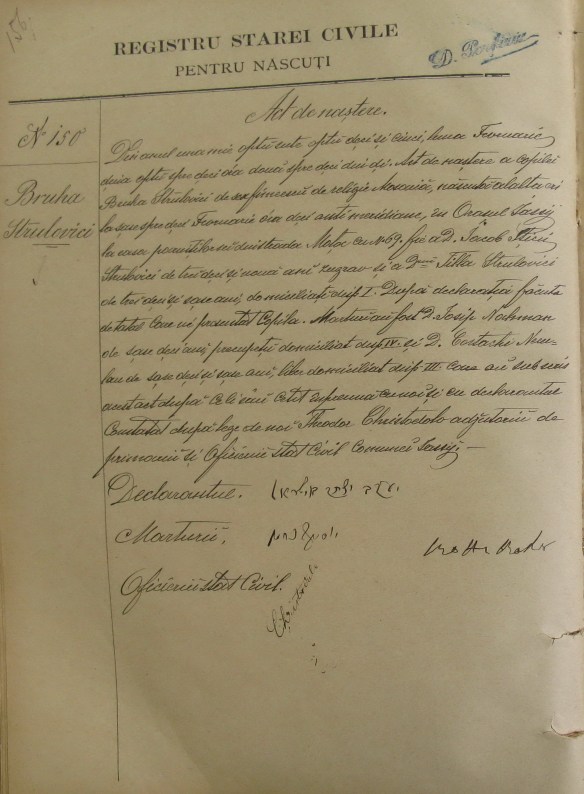 156
REGISTRU STAREI CIVILE
PENTRU NĂSCUȚI
Act de naștere.
N 150
Bruha
Strulovici
Din anul una mie optu sute optu deci și cinci, luna Fevruarie
diua optu spre deci ora două spre deci din di. Act de naștere a copilei
Bruha Strulovici de sex fimeescŭ de religie Mosaică, născută alaltă eri
la șese spre deci Fevruarie ora deci anti meridiane, în Orașul Iassy
la casa părinților sei din strada Metoc cu No 69. fiica D. Iacob
Strulovici de trei deci și nouă ani zugrav și a Dnei Tilla Strulovici
de trei deci și șase ani, domiciliați disp I. După declarația făcută
de tatăl care ni presentat Copila. Marturii au fost D. Iosip Nahman
de șase deci ani, precupețu domiciliat disp IV. și D. Costache
de șase deci și șase ani, liber domiciliat disp III Care au subscris
acest act după ce li sau cetit împreună cu noi și cu declarantul
Constatat după lege de noi Theodor Christodolo adjutoriŭ de
primariŭ și Oficeriŭ stat Civil Comunei Iassy. —
Declarantul.
Marturii,
Oficeriŭ stat Civil.
Christodolo